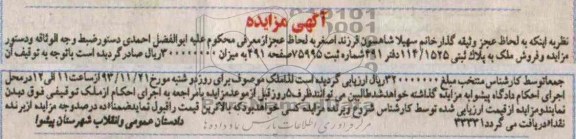 آگهی مزایده
نظر به اینکه به لحاظ عجز وثیقه گذار خانم سهیلا شاهسون فرزند اصغر به لحاظ عجز از معرفی محکوم علیه ابوالفضل احمدی دستور ضبط وجه الوثاقه و دستور
مزایده و فروش ملک به پلاک ثبتی ۱۱۴/۱۵۲۵ دفتر ۴۹۱ شماره ثبت ۷۵۹۵ صفحه ۴۹۱ به میزان ۳۰۰۰۰۰۰۰۰ ریال صادر گردیده است با توجه به توقیف آن
جمعا توسط کارشناس منتخب مبلغ ۳۲۰۰۰۰۰۰۰ ریال ارزیابی گردیده است لذا ملک موصوف برای روز دوشنبه مورخ ۹۳/۱۱/۲۱ از ساعت ۱۱ الی ۱۲ در محل
اجرای احکام دادگاه پیشوا به مزایده گذاشته خواهد شد طالبین می توانند ظرف ۵ روز قبل از موعد مزایده با مراجعه به اجرای احکام از ملک توقیفی فوق دیدن
نمایند و مزایده از قیمت ارزیابی شده توسط کارشناس شروع و برنده مزایده کسی خواهد بود که بالاترین قیمت را قبول نماید ضمنا ده درصد وجه مزایده از برنده
نقدا دریافت می گردد ۳۳۳۱
دادستان عمومی و انقلاب شهرستان پیشوا